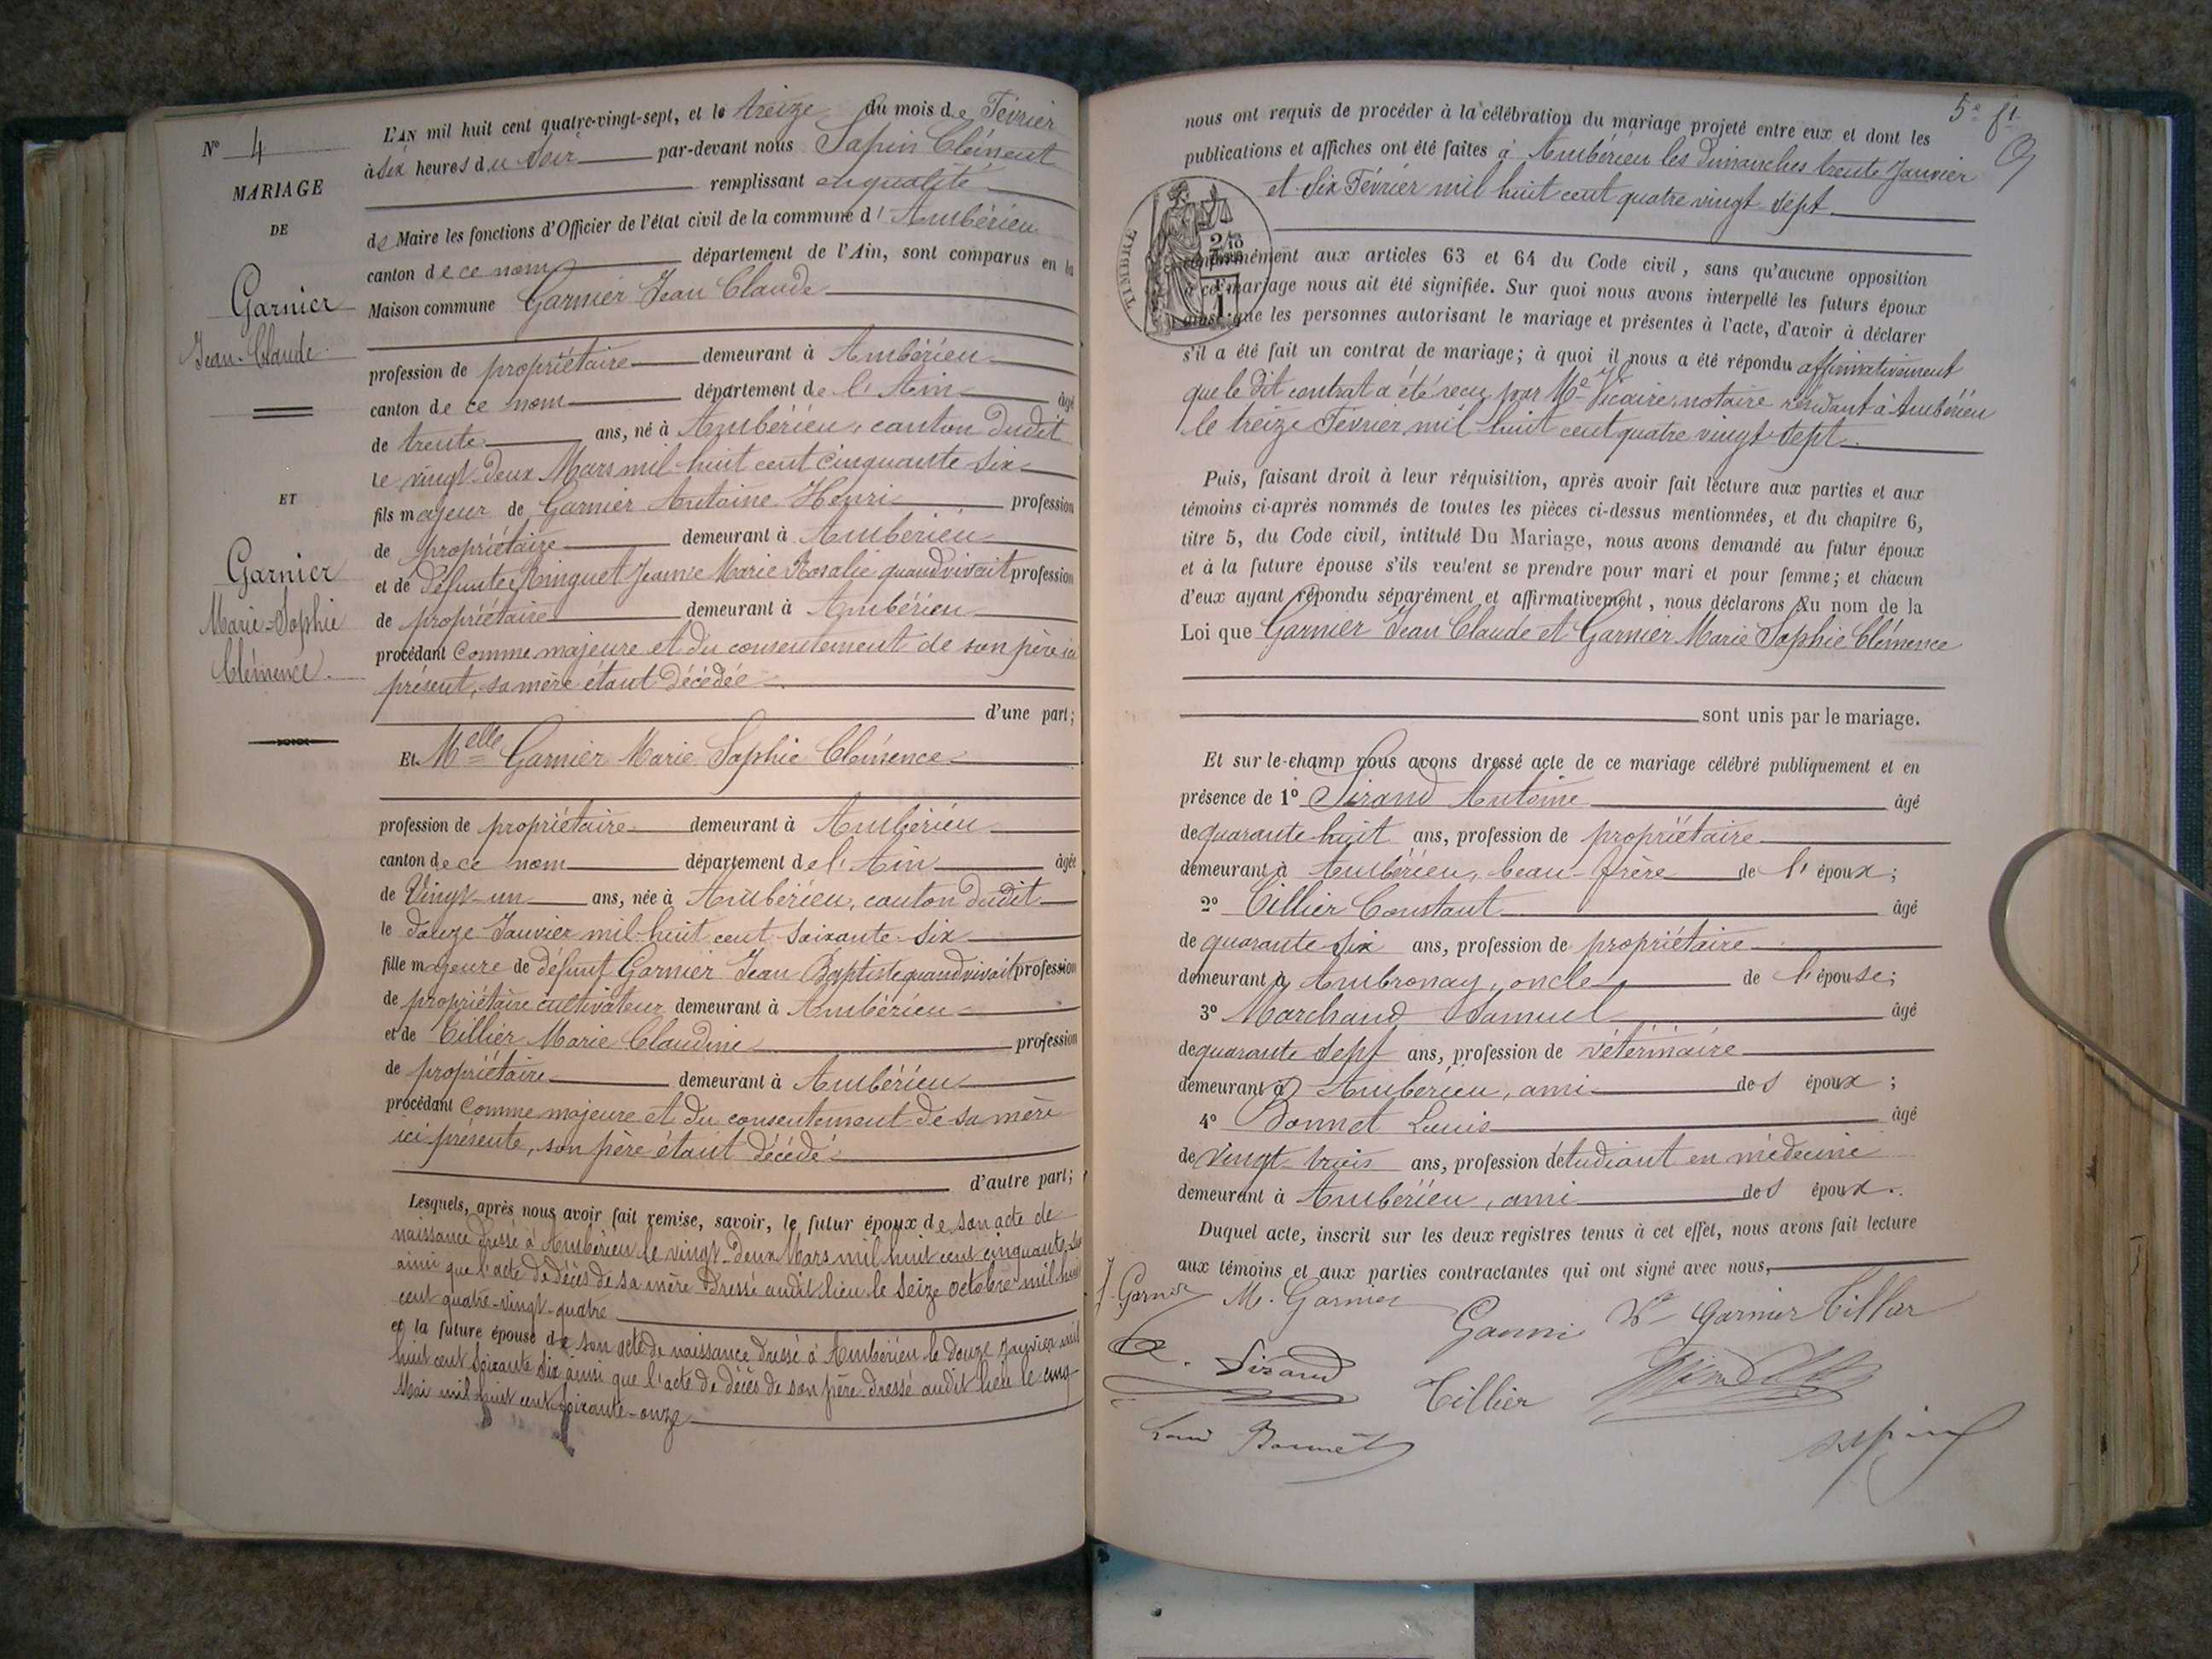 N° 4
MARIAGE
DE
Garnier
Jean-Claude
ET
Garnier
Marie-Sophie
Clémence.
L'AN mil huit cent quatre-vingt-sept, et le treize du mois de Février
à six heures du soir par-devant nous Sapin Clément
remplissant en qualité
de Maire les fonctions d'Officier de l'état civil de la commune d'Ambérieu
canton de ce nom département de l'Ain, sont comparus en la
Maison commune Garnier Jean Claude
profession de propriétaire demeurant à Ambérieu
canton de ce nom département de l'Ain âgé
de trente ans, né à Ambérieu, canton dudit
le vingt-deux Mars mil huit cent cinquante six
fils majeur de Garnier Antoine Henri profession
de propriétaire demeurant à Ambérieu
et de défunte Ringuet Jeanne Marie Rosalie quand vivait profession
de propriétaire demeurant à Ambérieu
procédant comme majeure et du consentement de son père ici
présent, sa mère étant décédée
d'une part;
Et Melle Garnier Marie Sophie Clémence
profession de propriétaire demeurant à Ambérieu
canton de ce nom département de l'Ain âgée
de Vingt-un ans, née à Ambérieu, canton dudit
le douze Janvier mil huit cent soixante-six
fille majeure de défunt Garnier Jean Baptiste quand vivait profession
de propriétaire cultivateur demeurant à Ambérieu
et de Tillier Marie Claudine profession
de propriétaire demeurant à Ambérieu
procédant comme majeure et du consentement de sa mère
ici présente, son père étant décédé
d'autre part;
Lesquels, après nous avoir fait remise, savoir, le futur époux de son acte de
naissance dressé à Ambérieu le vingt-deux Mars mil huit cent cinquante-six
ainsi que l'acte de décès de sa mère dressé audit lieu le seize octobre mil huit
cent quatre-vingt-quatre
et la future épouse de son acte de naissance dressé à Ambérieu le douze Janvier mil
huit cent soixante six ainsi que l'acte de décès de son père dressé audit lieu le cinq
Mai mil huit cent soixante-onze
5e ft
nous ont requis de procéder à la célébration du mariage projeté entre eux et dont les
publications et affiches ont été faites à Ambérieu les Dimanches trente Janvier
et six Février mil huit cent quatre vingt sept
TIMBRE
2/10
conformément aux articles 63 et 64 du Code civil, sans qu'aucune opposition
à ce mariage nous ait été signifiée. Sur quoi nous avons interpellé les futurs époux
ainsi que les personnes autorisant le mariage et présentes à l'acte, d'avoir à déclarer
s'il a été fait un contrat de mariage; à quoi il nous a été répondu affirmativement
que le dit contrat a été reçu par Me Vicaire, notaire résidant à Ambérieu
le treize Février mil huit cent quatre vingt sept
Puis, faisant droit à leur réquisition, après avoir fait lecture aux parties et aux
témoins ci-après nommés de toutes les pièces ci-dessus mentionnées, et du chapitre 6,
titre 5, du Code civil, intitulé Du Mariage, nous avons demandé au futur époux
et à la future épouse s'ils veulent se prendre pour mari et pour femme; et chacun
d'eux ayant répondu séparément et affirmativement, nous déclarons au nom de la
Loi que Garnier Jean Claude et Garnier Marie Sophie Clémence
sont unis par le mariage.
Et sur-le-champ nous avons dressé acte de ce mariage célébré publiquement et en
présence de 1° Sirand Antoine âgé
de quarante huit ans, profession de propriétaire
demeurant à Ambérieu, beau-frère de l'époux;
2° Tillier Constant âgé
de quarante six ans, profession de propriétaire
demeurant à Ambronay, oncle de l'épouse;
3° Marchand Samuel âgé
de quarante sept ans, profession de vétérinaire
demeurant à Ambérieu, ami des époux;
4° Bonnet Louis âgé
de vingt trois ans, profession d'étudiant en médecine
demeurant à Ambérieu, ami des époux.
Duquel acte, inscrit sur les deux registres tenus à cet effet, nous avons fait lecture
aux témoins et aux parties contractantes qui ont signé avec nous,
J. Garnier M. Garnier Garnier Ve Garnier Tillier
Sirand Tillier
Louis Bonnet Sapin